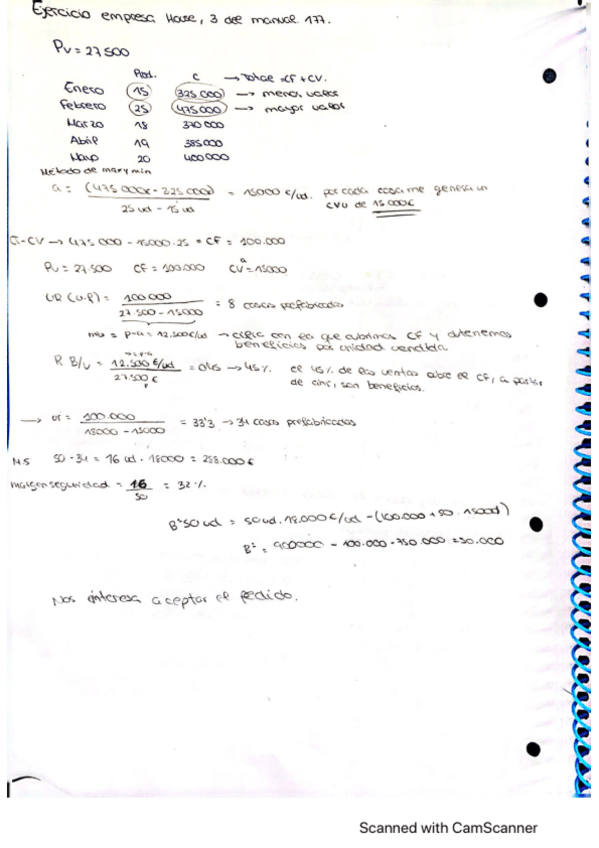 Ejercicio empresa House, 3 del manual 177.
PV = 27.500
Prod. C → Total = CF + CV.
Enero 15 325.000 → menor valor
Febrero 25 475.000 → mayor valor
Marzo 18 370.000
Abril 19 385.000
Mayo 20 400.000
Método de max y min
a: (475.000 - 325.000) / 25 ud - 15 ud = 15000 €/ud. por cada casa me genera un CVU de 15.000€
CT - CV → 475.000 - 15000 · 25 = CF = 100.000
PV = 27.500 CF = 100.000 CV = 15000
= 100.000 / 27.500 - 15000 = 8 casas prefabricadas
= p-a = 12.500€/ud → con la que cubrimos CF y obtenemos
beneficios por unidad vendida.
R B/V = 12.500 €/ud / 27.500 € = 0'45 → 45% el 45% de las ventas cubre el CF, a partir
de son beneficios.
→ = 100.000 / 18000 - 15000 = 33'3 → 34 casas prefabricadas
MS 50 - 34 = 16 ud · 18000 = 288.000 €
margen seguridad = 16 / 50 = 32%
Bº 50 ud = 50 ud. 18.000 €/ud - (100.000 + 50 · 15000)
Bº = 900000 - 100.000 - 750.000 = 50.000
Nos interesa aceptar el pedido.
Scanned with CamScanner